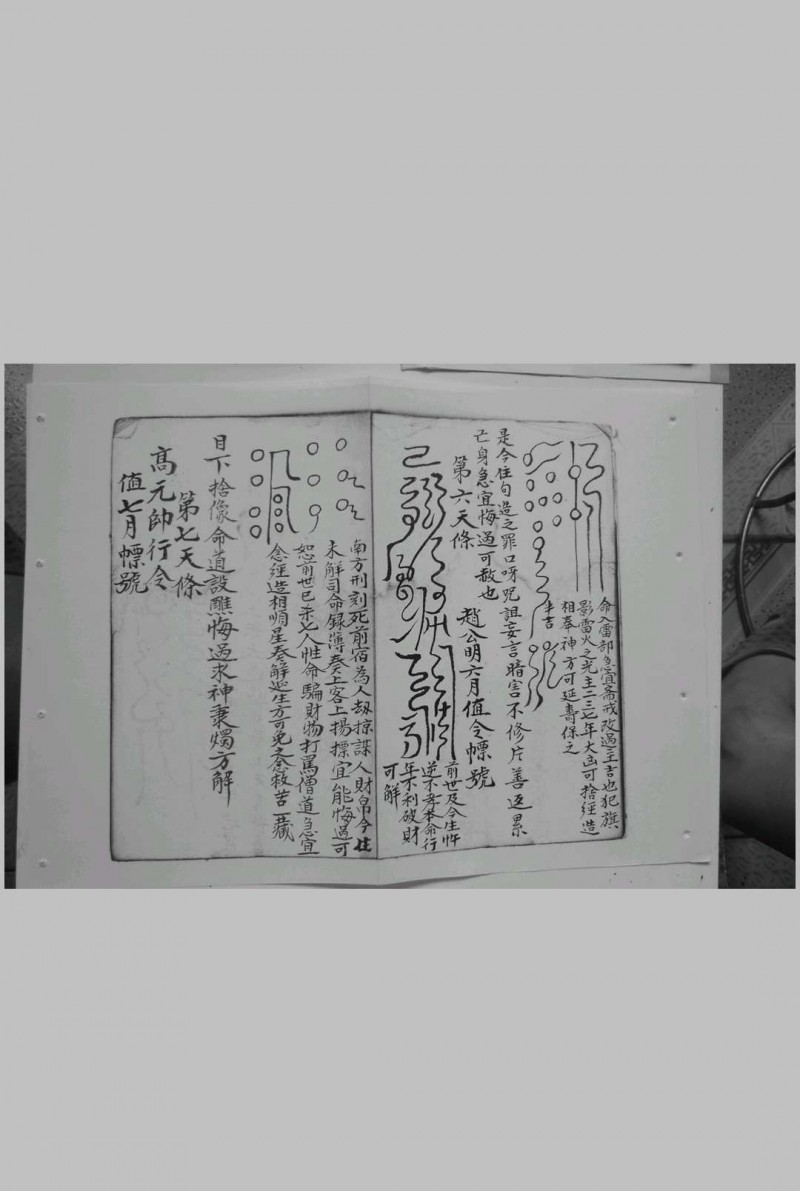 命入雷部急宜斎戒改過主吉也犯旗
影雷火之光主二三七年大凶可捨經造
相奉神方可延壽保之
主吉
是今住句造之罪口呀咒詛妄言暗害不修片善返累
亡身急宜悔過可赦也
第六天條
趙公明六月值令幖號
前世及今生忤
逆不孝本命行
年不利破財
可解
南方刑刻死前宿為人劫掠謀人財帛今住
未解司命録薄奏上客上揚摽宜能悔過可
恕前世已杀七人性命騙財物打罵僧道急宜
念經造相順星奏解延生方可免之念救苦
目下捨像命道設醮悔過求神秉燭方解
第七天條
高元帥行令
值七月幖號